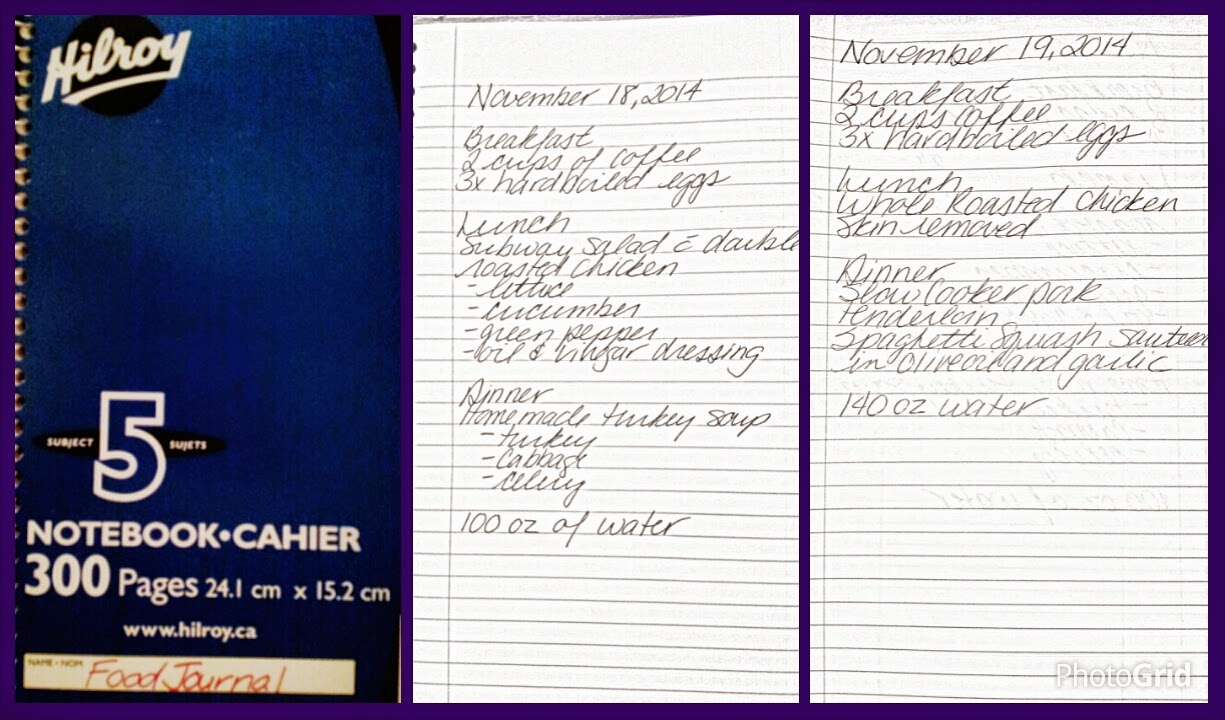 Hilroy
SUBJECT 5 SUJETS
NOTEBOOK•CAHIER
300 Pages 24.1 cm x 15.2 cm
www.hilroy.ca
NAME • NOM Food Journal
November 18, 2014
Breakfast
2 cups of coffee
3x hardboiled eggs
Lunch
Subway Salad c̄ double
roasted chicken
- lettuce
- cucumber
- green pepper
- oil & vingar dressing
Dinner
Homemade turkey soup
- turkey
- cabbage
- celery
100 oz of water
November 19, 2014
Breakfast
2 cups coffee
3x hardboiled eggs
Lunch
Whole Roasted Chicken
Skin removed
Dinner
Slow Cooker pork
tenderloin
Spaghetti Squash Sautee
in Olive oil and garlic
140 oz water
PhotoGrid